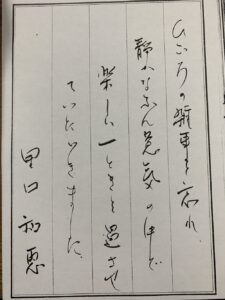 ひごろの雑事を忘れ
静かなふん囲気の中で
楽しい一ときを過させ
ていただきました
里口和恵